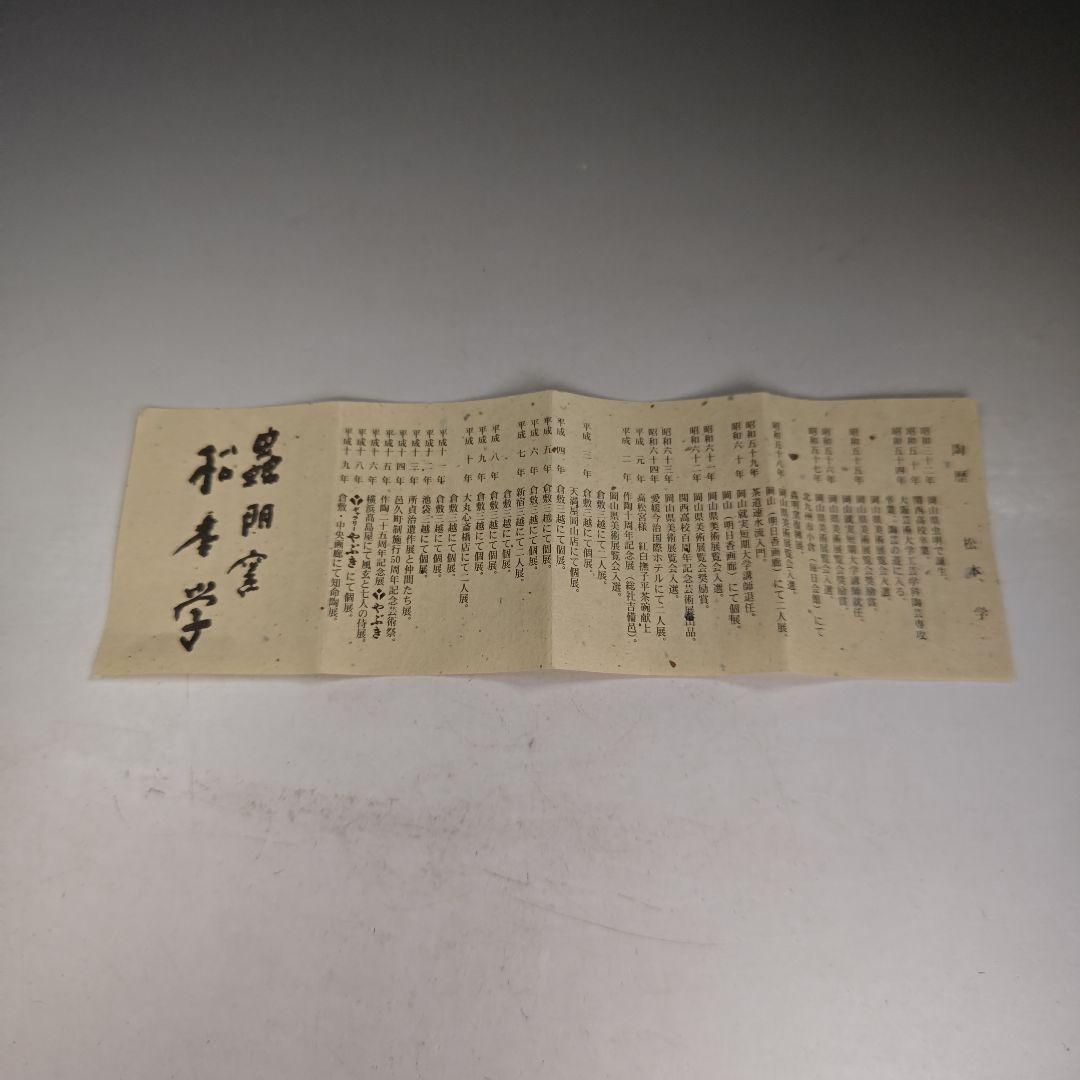 陶歴
松本 学
昭和三十二年 岡山県虫明で誕生。
昭和五十年 関西高校卒業。
昭和五十四年 大阪芸術大学工芸学科陶芸専攻
卒業。陶芸の道に入る。
岡山県美術展覧会入選。
昭和五十五年 岡山県美術展覧会奨励賞。
岡山就実短期大学講師就任。
岡山県美術展覧会奨励賞。
昭和五十六年 岡山県美術展覧会入選。
昭和五十七年 岡山県美術展覧会入選。
北九州市小倉(毎日会館)にて
岡山県美術展覧会入選。
昭和五十八年 岡山(明日香画廊)にて二人展。
茶道速水流入門。
昭和五十九年 岡山就実短期大学講師退任。
昭和六十年 岡山(明日香画廊)にて個展。
岡山県美術展覧会入選。
昭和六十一年 岡山県美術展覧会奨励賞。
昭和六十二年 関西高校百周年記念芸術展出品。
岡山県美術展覧会入選。
昭和六十三年 愛媛今治国際ホテルにて二人展。
昭和六十四年 高松宮様 紅白撫子平茶碗献上
平成元年 作陶十周年記念展(総社吉備邑)。
平成二年 岡山県美術展覧会入選。
倉敷三越にて二人展。
平成三年 倉敷三越にて個展。
天満屋岡山店にて個展。
平成四年 倉敷三越にて個展。
平成五年 倉敷三越にて個展。
平成六年 倉敷三越にて個展。
平成七年 新宿三越にて二人展。
倉敷三越にて個展。
平成八年 倉敷三越にて個展。
平成九年 倉敷三越にて個展。
平成十年 大丸心斎橋店にて二人展。
倉敷三越にて個展。
平成十一年 倉敷三越にて個展。
平成十二年 池袋三越にて個展。
平成十三年 所貞治遺作展と仲間たち展。
平成十四年 邑久町制施行50周年記念芸術祭。
平成十五年 作陶二十五周年記念展 やぶき
平成十六年 横浜高島屋にて風玄と七人の侍展。
平成十八年 ギャラリーやぶきにて個展。
平成十九年 倉敷・中央画廊にて知命陶展。
蟲明窯
松本学